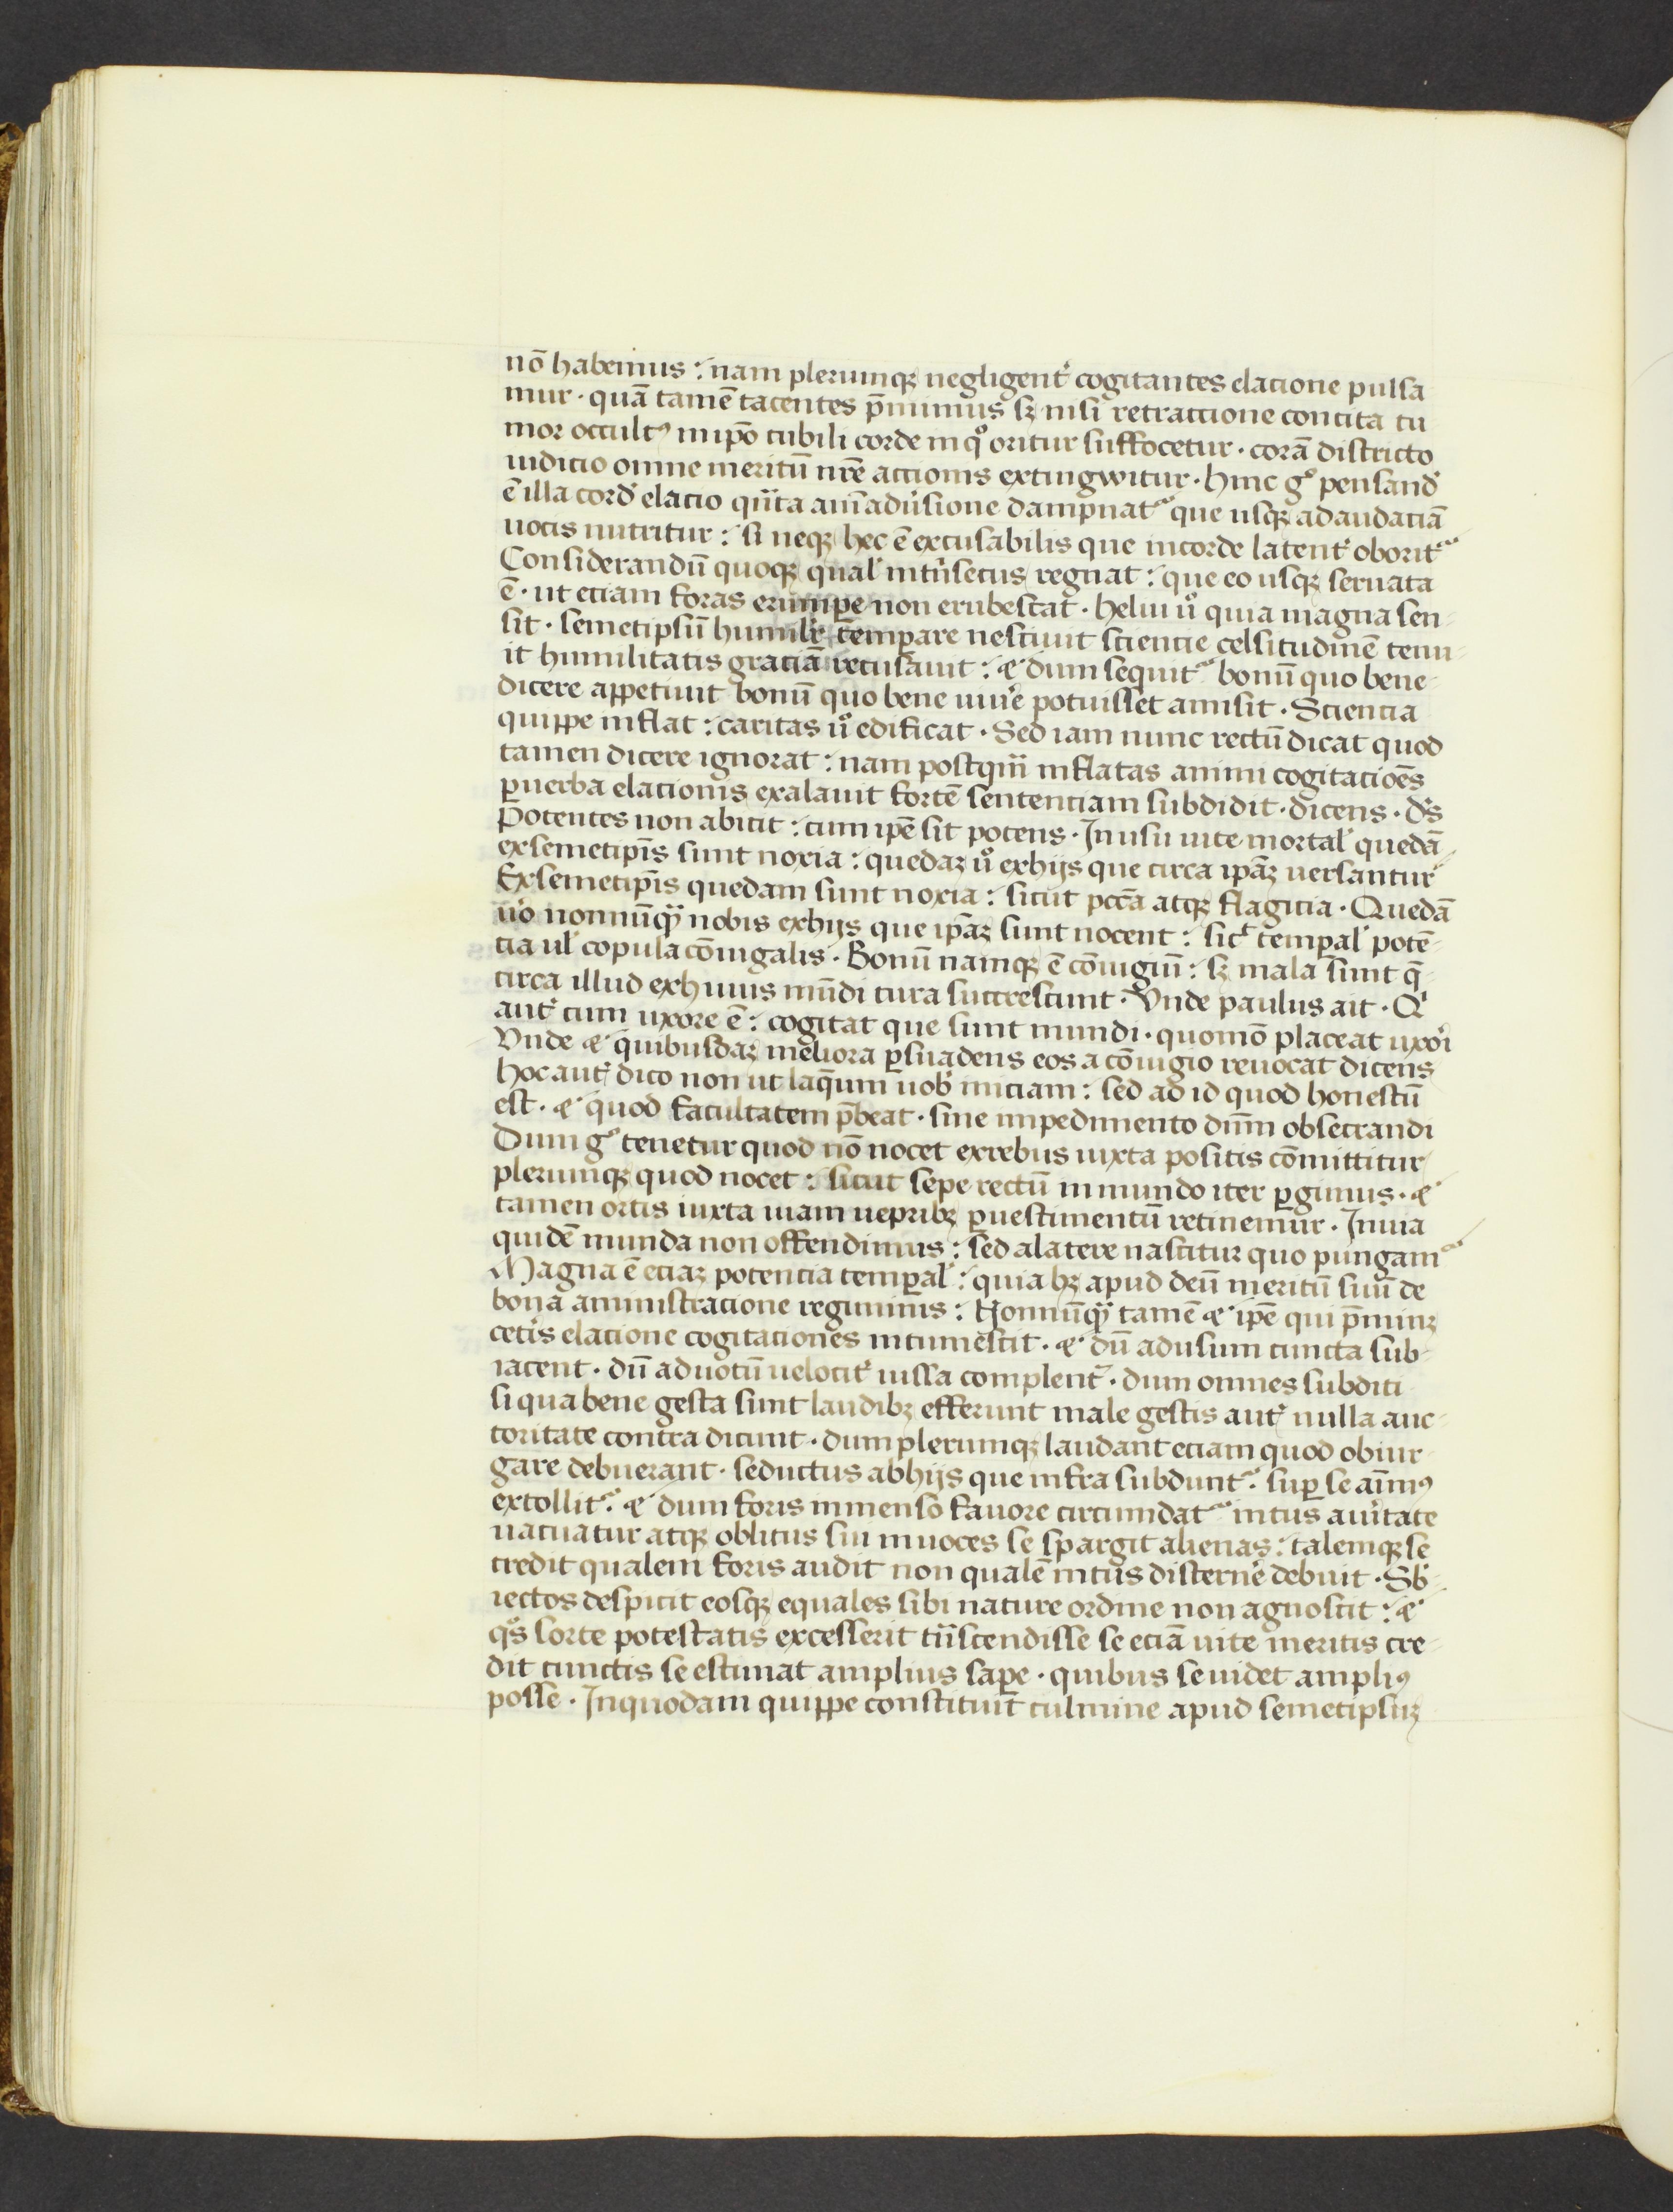 nō habemus : nam plerumqꝫ negligent᷑ cogitantes elacione pulsa
mur · quā tamē tacentes p̄mimus sꝫ nisi retractione concita tu
mor occultꝰ in ip̄o cubili corde in qͦ oritur suffocetur · corā districto
iudicio omne meritū nr̄e accionis extingwitur · hinc gͦ pensand᷑
ē illa cord᷑ elacio qͣ̄ta aīaduersione dampnat᷑ que usqꝫ ad audaciā
uocis nutritur : si neqꝫ hec ē excusabilis que in corde latent᷑ oborit᷑
Considerandū quoqꝫ qual᷑ int̾nsecus regnat : que eo usqꝫ seruata
ē · ut eciam foras erumpe᷑ non erubescat · heliu uͦ quia magna sen
sit · semetipsū humilr̄ temꝑare nesciuit sciencie celsitudinē tenu
it humilitatis graciā recusauit : ⁊ dum sequit᷑ bonū quo bene
dicere appetiuit bonū quo bene uiue᷑ potuisset amisit · Sciencia
quippe inflat : caritas uͦ edificat · Sed iam nunc rectū dicat quod
tamen dicere ignorat : nam postqͣm̄ inflatas animi cogitacioēs
ꝑ uerba elacionis exalauit fortē sentenciam subdidit · dicens · dēs
Potentes non abicit : cum ip̄e sit potens · In usu uite mortal᷑ quedā
ex semetip̄is sunt noxia : quedaꝫ uͦ ex hijs que circa ip̄aꝫ uersantur
Ex semetip̄is quedam sunt noxia : sicut pcc̄a atqꝫ flagicia · Quedā
uͦo nonnūqͣꝫ nobis ex hijs que ip̄aꝫ sunt nocent : sicᷓ temꝑal᷑ potē
cia ul᷑ copula cōiugalis · Bonū namqꝫ ē cōiugiū : sꝫ mala sunt q̄
circa illud ex huius mūdi cura succrescunt · Vnde paulus ait · Qͥ
aut᷑ cum uxore ē : cogitat que sunt mundi · quomō placeat uxori
Vnde ⁊ quibusdaꝫ meliora ꝑsuadens eos a cōiugio reuocat dicens
hoc aut᷑ dico non ut laq̄um uob᷑ iniciam : sed ad id quod honestū
est · ⁊ quod facultatem p̄beat · sine impedimento dn̄m obsecrandi
Dum gͦ tenetur quod nō nocet ex rebus iuxta positis cōmittitur
plerumqꝫ quod nocet : sicut sepe rectū in mundo iter ꝑgimus · ⁊
tamen ortis iuxta uiam ueprıbꝫ ꝑ uestimentū retinemur · In uia
quidē munda non offendimus : sed a latere nascitur quo pungam᷑
Magna ē eciaꝫ potencia temꝑal᷑ : quia hꝫ apud deū meritū suū de
bona aministracione regiminis : Nonnūqͣꝫ tamē ⁊ ip̄e qui p̄minꝫ
cet᷑is elacione cogitaciones intumescit · ⁊ dū ad usum cuncta sub
iacent · dū ad uotū uelocit᷑ iussa complent᷑ · dum omnes subditi
si qua bene gesta sunt laudibꝫ efferunt male gestis aut᷑ nulla auc
toritate contra dicunt · dum plerumqꝫ laudant eciam quod obiur
gare debuerant · seductus ab hijs que infra subdunt᷑ · suꝑ se aīmꝰ
extollit᷑ ⁊ dum foris inmenso fauore circumdat᷑ intus au᷑itate
uacuatur atqꝫ oblitus sui in uoces se spargit alienas : talemqꝫ se
credit qualem foris audit non qualē intus discerne᷑ debuit · Sb᷑
iectos despicit eosqꝫ equales sibi nature ordine non agnoscit : ⁊
qͦs sorte potestatis excesserit tͣ̄scendisse se eciā uite meritis cre
dit cunctis se estimat amplius saꝑe · quibus se uidet ampliꝰ
posse · In quodam quippe constituit culmine apud semetipsuꝫ